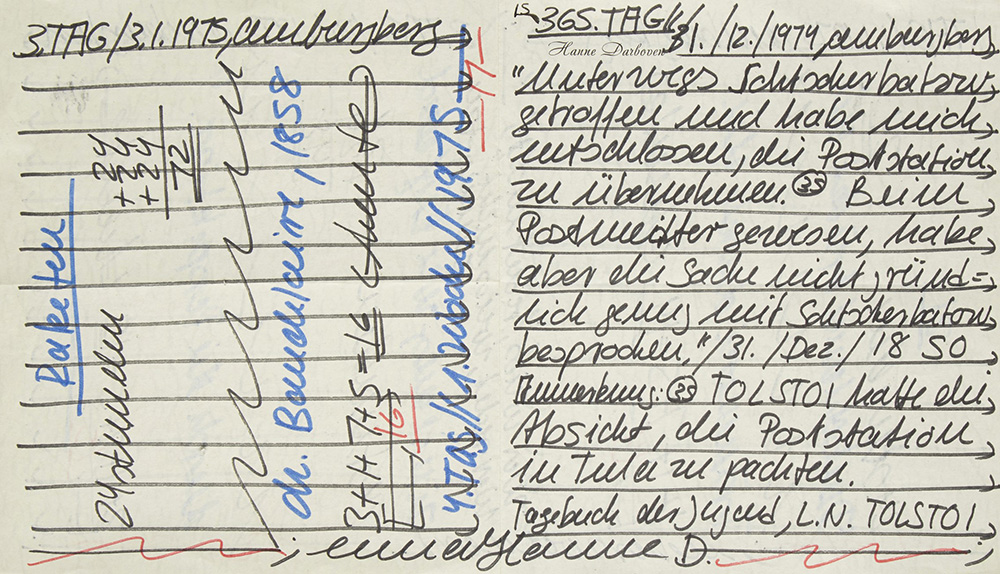 3.TAG/3.1.1975, am burgberg
24
+ 24
+ 24
72
Raketen
24 stunden
ch. Baudelaire, 1858
3+1+7+5 = 16 heute
16
4.TAG//1. woche//1975
-7-
365. TAG
Hanne Darboven
31./12./1974, am burgberg,
"Unterwegs Schtscherbatow,
getroffen und habe mich,
entschlossen, die Poststation,
zu übernehmen. (35) Beim,
Postmeister gewesen, habe,
aber die Sache nicht, gründ=,
lich genug mit Schtscherbatow,
besprochen,"/31./Dez./1850
Anmerkung: (35) TOLSTOI hatte die,
Absicht, die Poststation,
in Tula zu pachten.
Tagebuch der Jugend, L.N. TOLSTOI,
Hanne D.